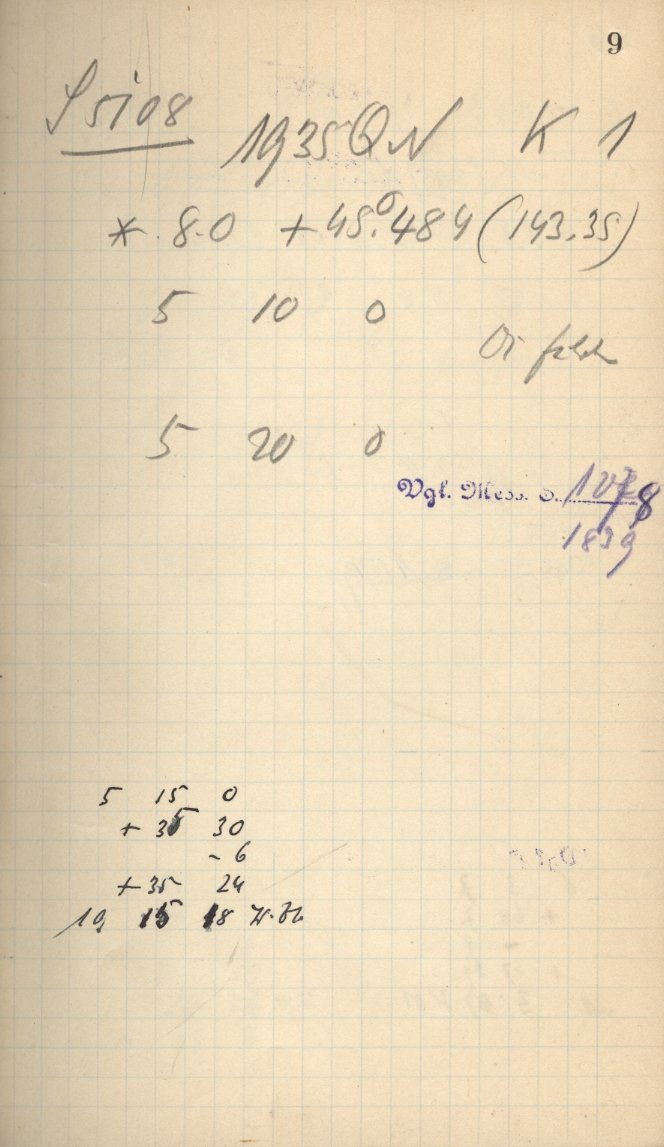 9
S 5108 1935 QN K 1
* 8.0 +45°.484 (143.35)
5 10 0
5 20 0
Vgl. Mess. S. 1078
1839
5 15 0
+ 35 30
- 6
+ 35 24
19 15 18